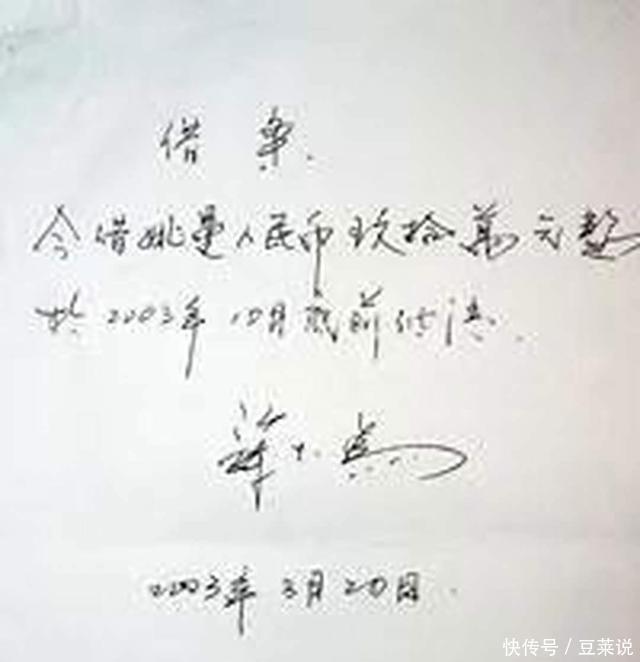 借条
今借姚曼人民币玖拾萬元整
于2003年10月底前付清.
2003年3月20日.
快传号/豆莱说